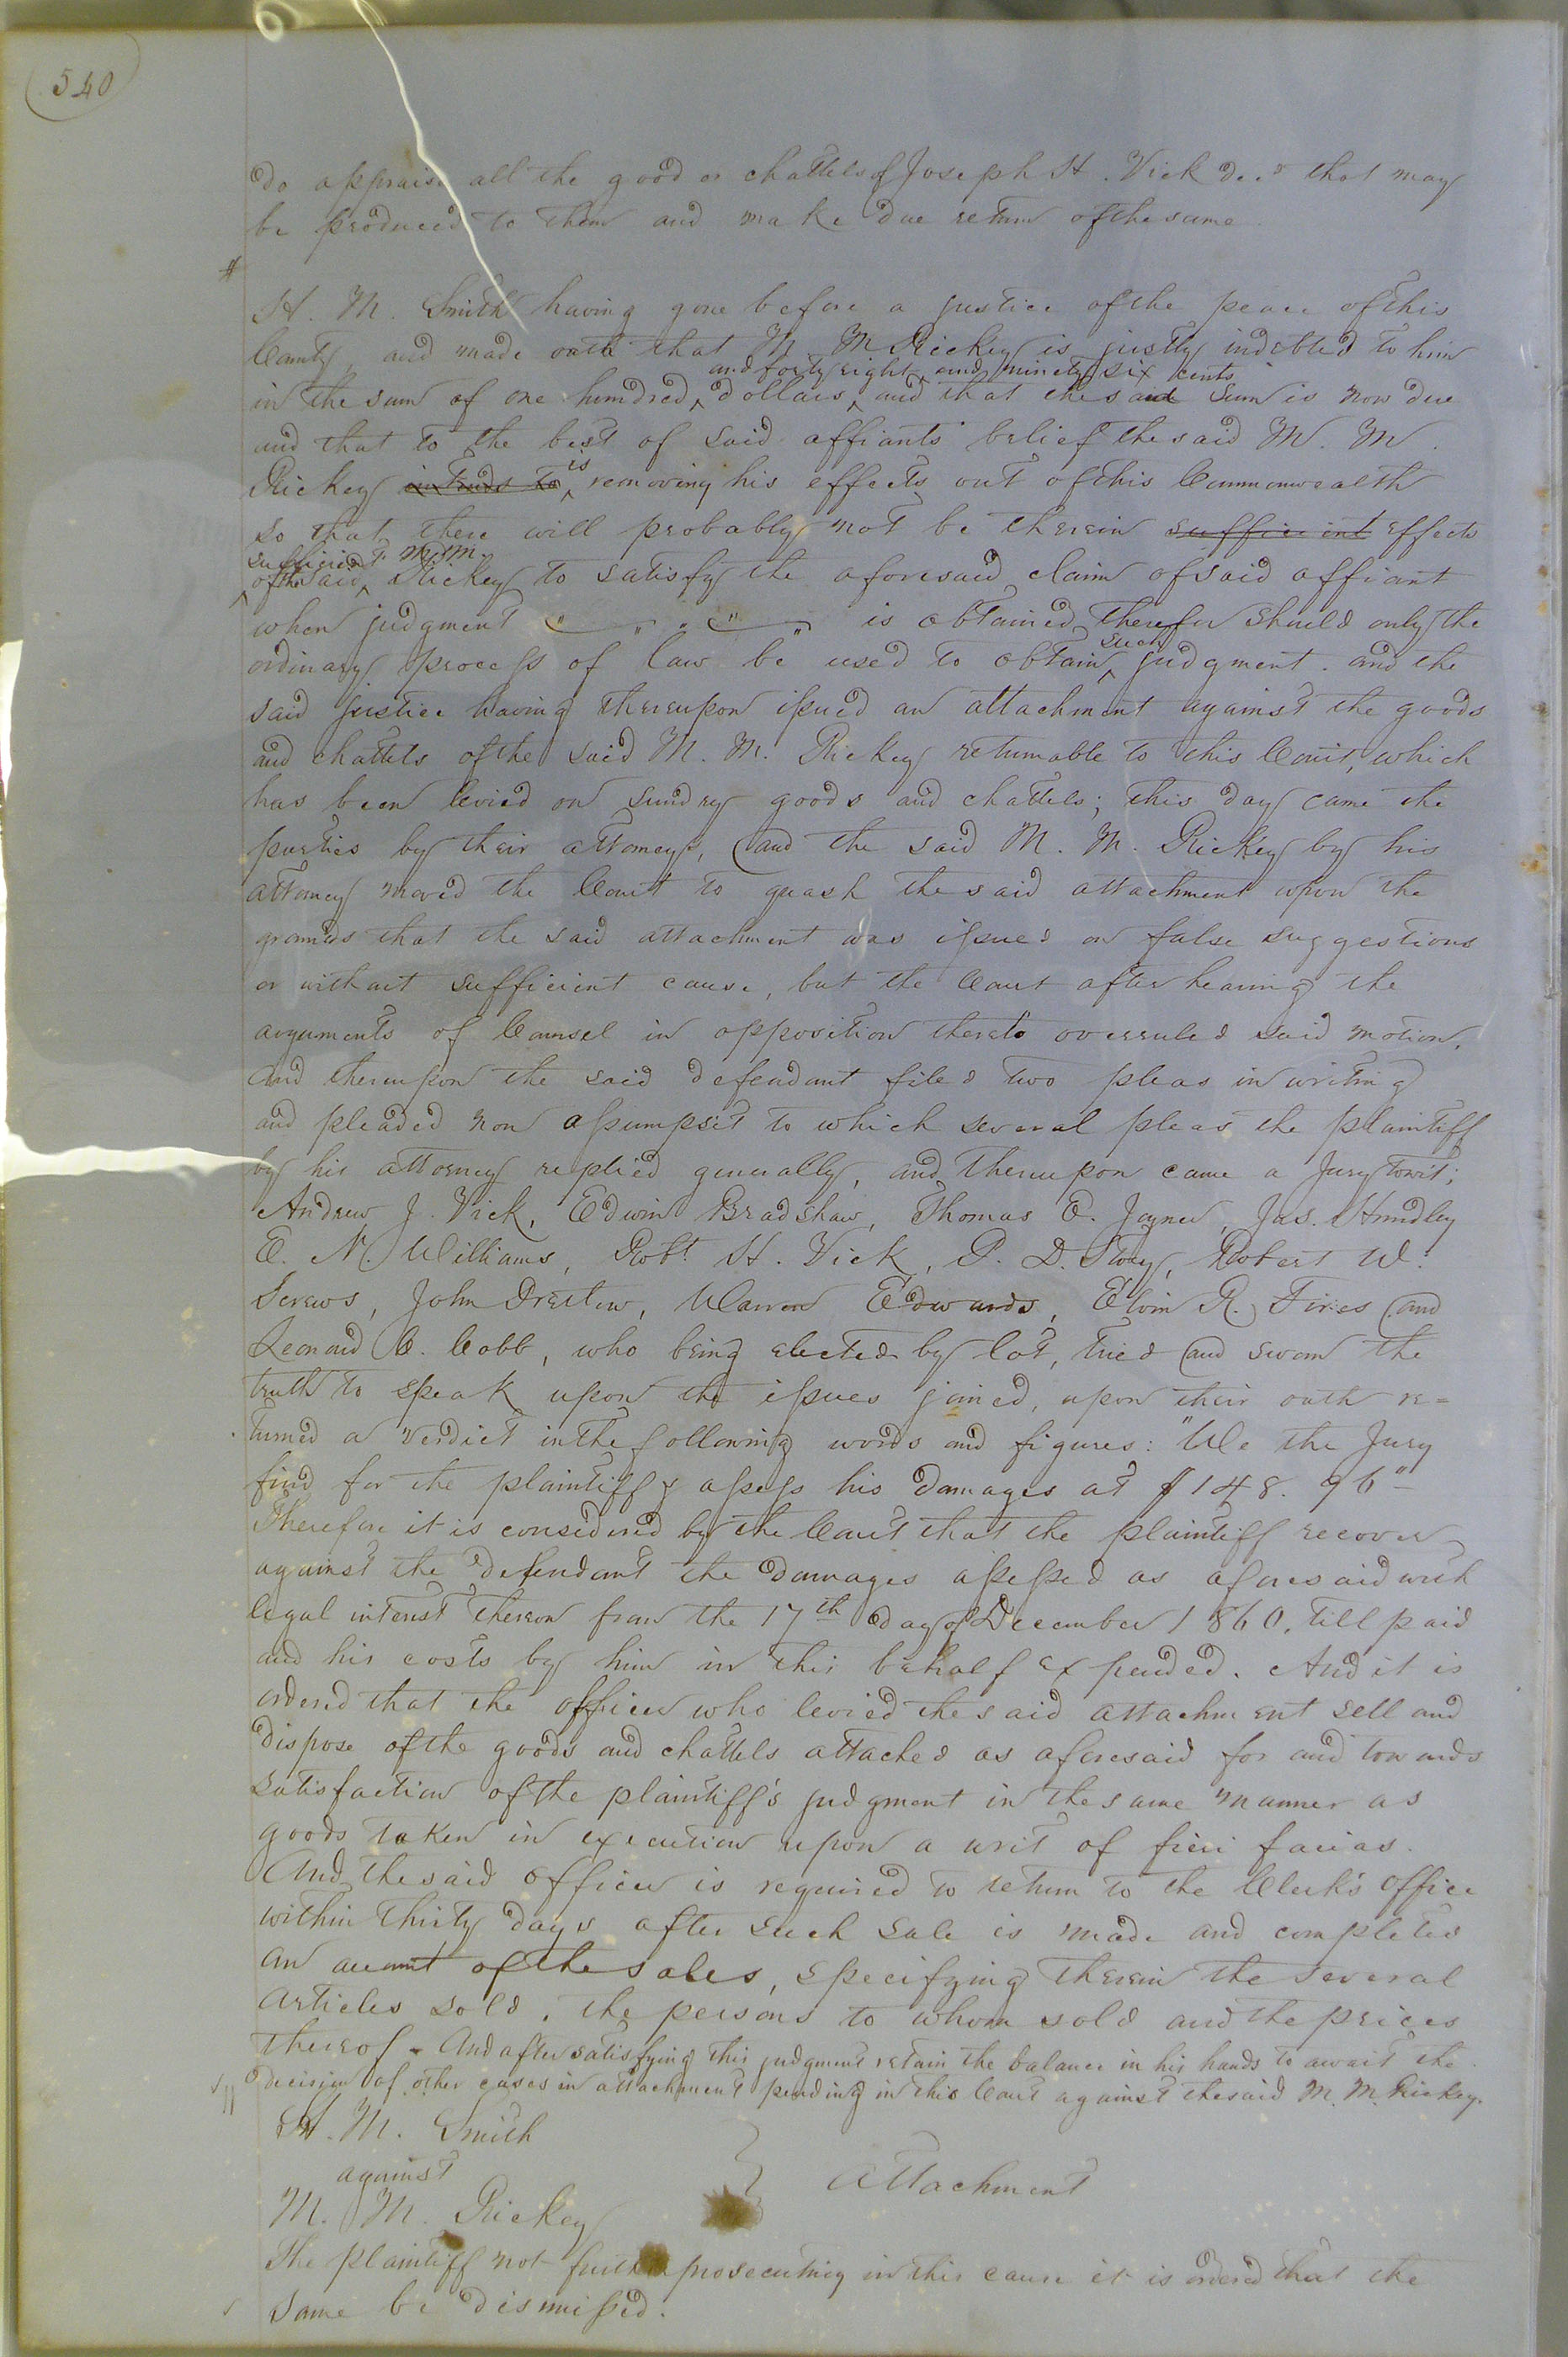 540
do appraise all the good or chattels of Joseph H. Vick decd that may
be produced to them and make due return of the same.
#
H. M. Smith having gone before a justice of the peace of this
County, and made oath that M. M Rickey is justly indebted to him
and forty eight and ninety six cents
in the sum of one hundred ^ dollars ^ and that the said Sum is now due
and that to the best of said affiants belief the said M. M.
Rickey intends to ^ is removing his effects out of this Commonwealth
so that there will probably not be therein sufficient effects
sufficient M. M.
^ of the said ^ Rickey to satisfy the aforesaid claim of said affiant
when judgment is obtained therefor should only the
ordinary process of law be used to obtain ^ such judgment. and the
said justice having thereupon issued an attachment against the goods
and chattels of the said M. M. Rickey returnable to this Court, which
has been levied on sundry goods and chattels; this day came the
parties by their attorneys, and the said M. M. Rickey by his
attorney moved the Court to quash the said attachment upon the
grounds that the said attachment was issued on false suggestions
or without sufficient cause, but the Court after hearing the
arguments of Counsel in opposition thereto overruled said motion.
And thereupon the said defendant filed two pleas in writing
and pleaded non assumpsit to which several pleas the plaintiff
by his attorney replied generally, and thereupon came a Jury towit;
Andrew J. Vick, Edwin Bradshaw, Thomas E. Joyner, Jas. Hundley
E. N. Williams, Robt. H. Vick, P. D. Robert W.
Screws, John Warren Edwards, R. and
Leonard C. Cobb, who being elected by lot, tried and sworn the
truth to speak upon the issues joined, upon their oath re=
turned a verdict in the following words and figures: "We the Jury
find for the plaintiff & assess his damages at $148.96"
Therefore it is considered by the Court that the plaintiff recover
against the defendant the damages assessed as aforesaid with
legal interest thereon from the 17th day of December 1860, till paid
and his costs by him in this behalf expended. And it is
ordered that the officer who levied the said attachment sell and
dispose of the goods and chattels attached as aforesaid for and towards
satisfaction of the plaintiff's judgment in the same manner as
goods taken in execution upon a writ of fieri facias.
And the said officer is required to return to the Clerk's office
within thirty days after such sale is made and completed
an account of the sales, specifying therein the several
articles sold, the persons to whom sold and the prices
thereof. And after satisfying this judgment retain the balance in his hands to await the
decision of other cases in attachment pending in this Court against the said M. M. Rickey.
H. M. Smith
against } Attachment
M. M. Rickey
The plaintiff not further prosecuting in this cause it is ordered that the
same be dismissed.